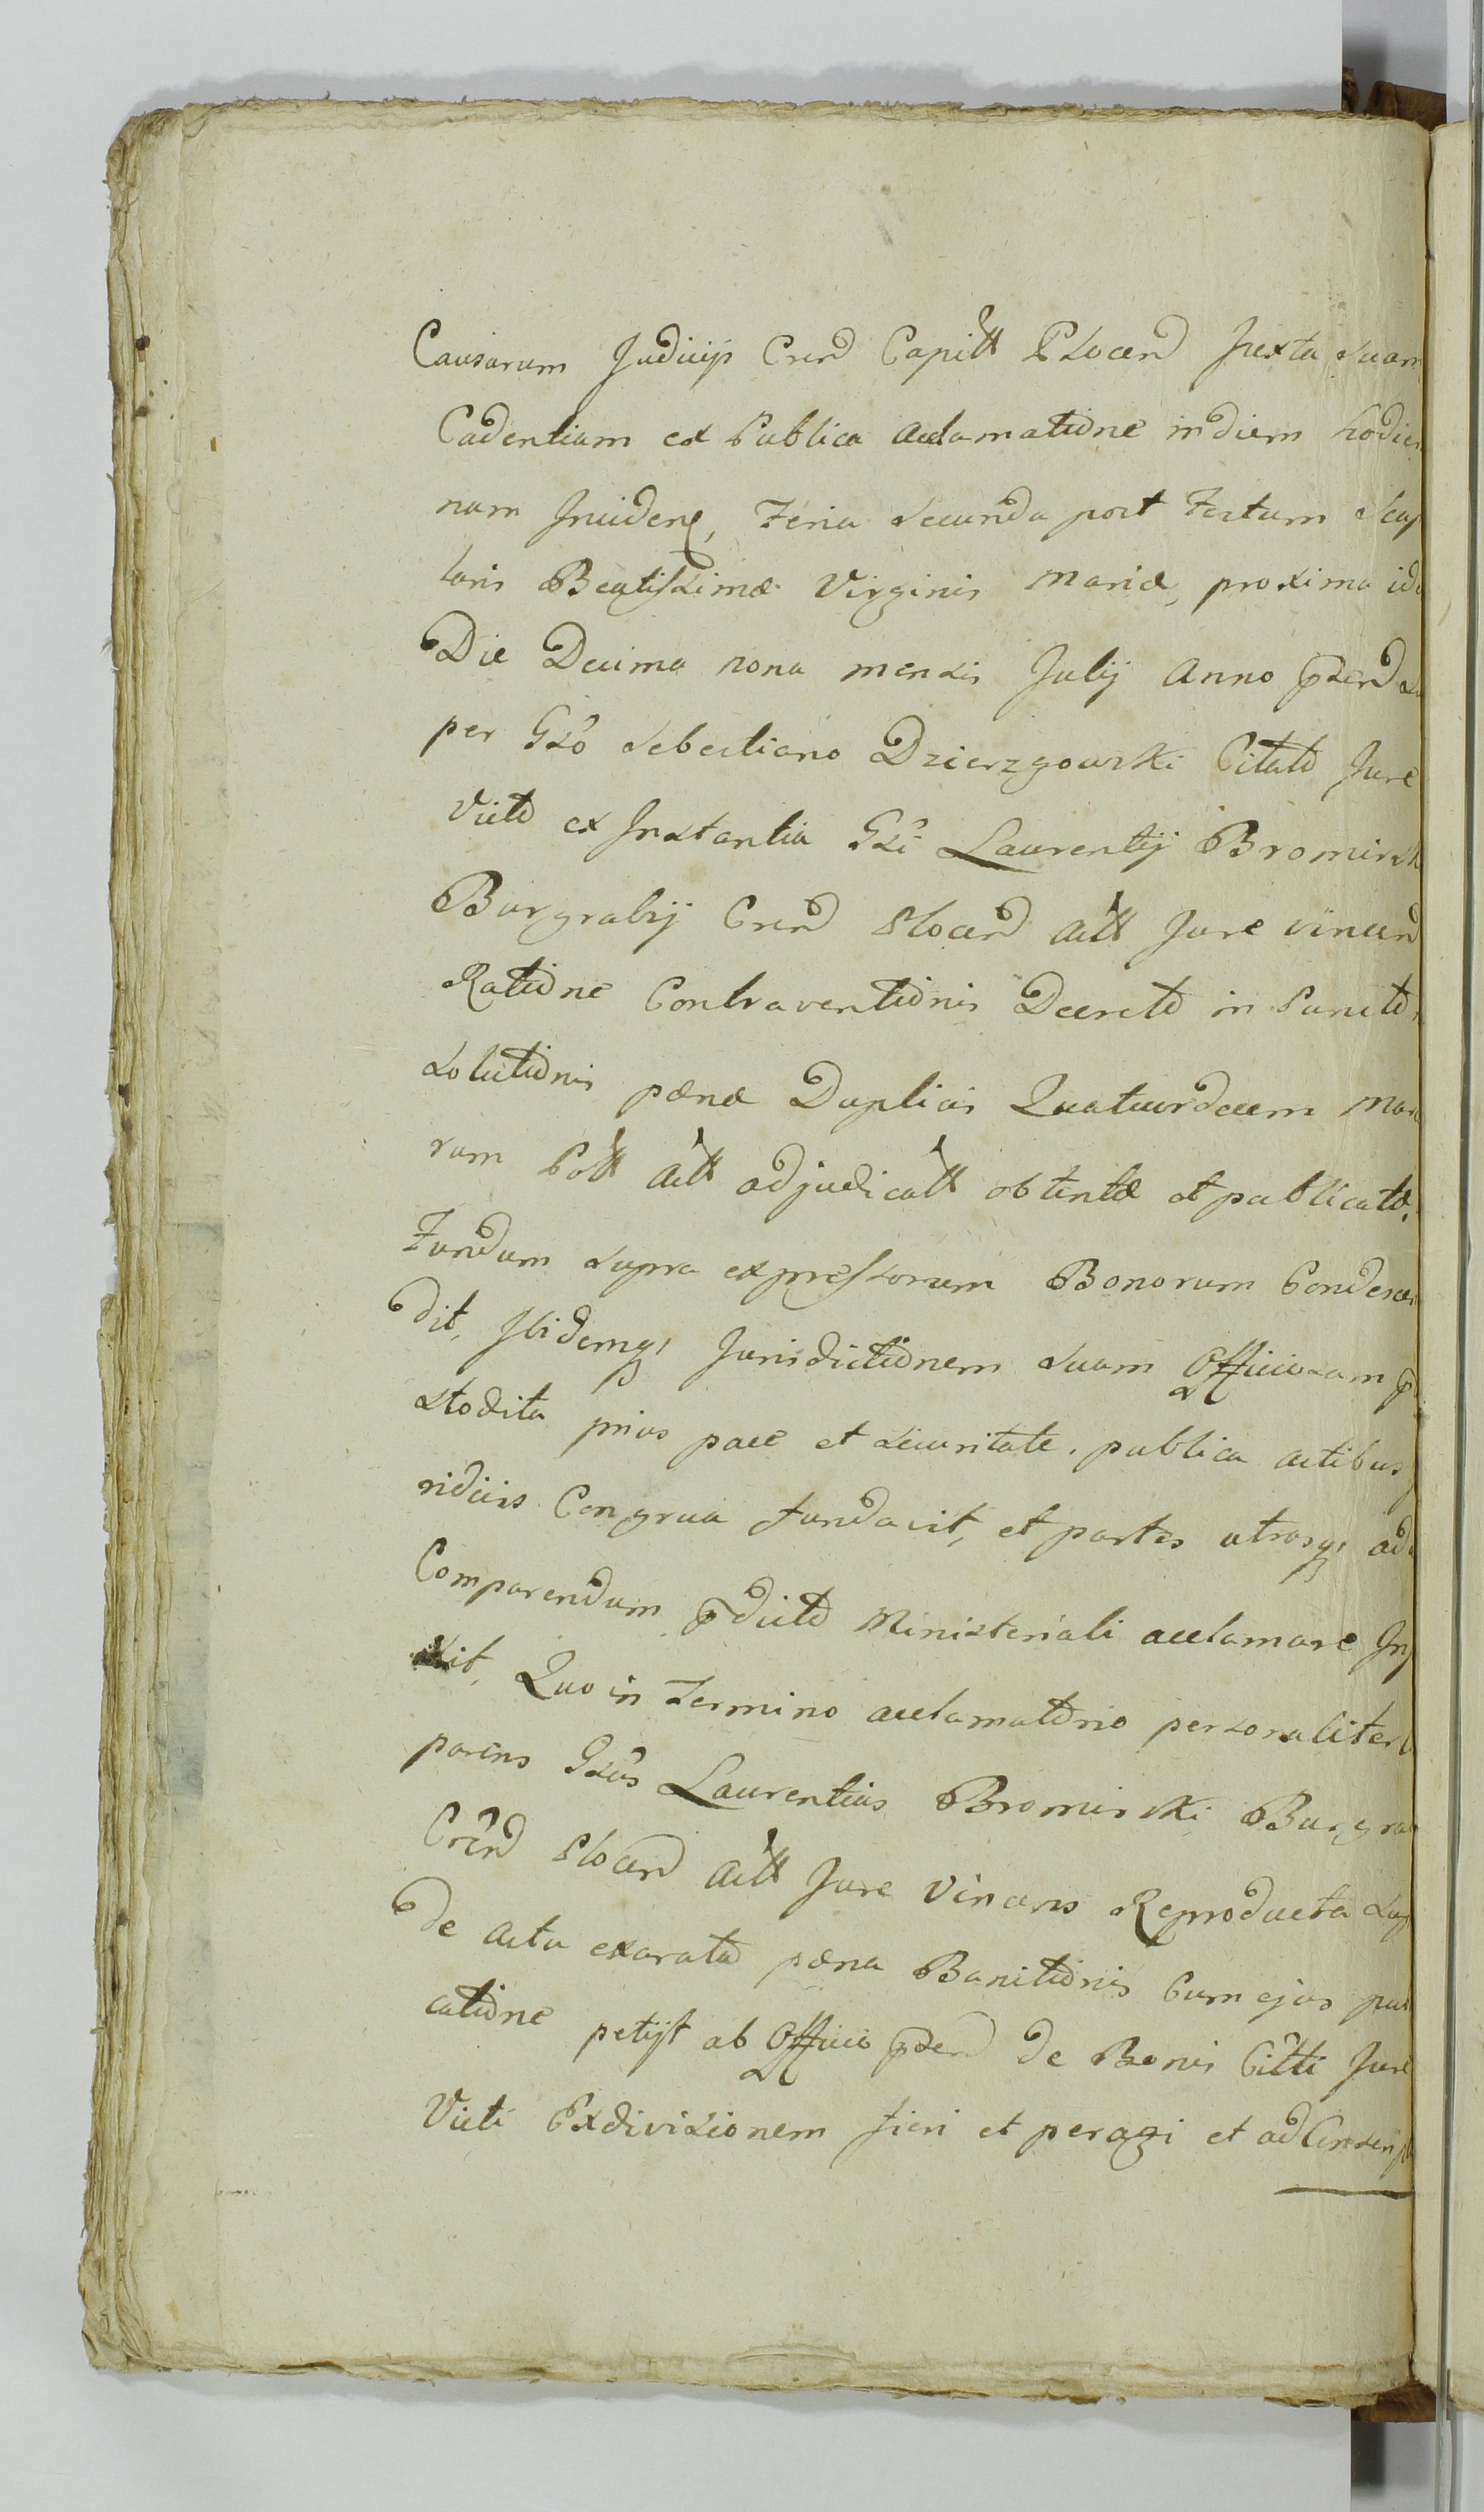 Causarum Judicijs Cren̄d Capitt̃l Plocen̄d Juxta suam
Cadentiam ex Publica acclamatione in diem hodier
nam Inciden̄, Feria Secunda post Festum Scap
laris Beatissimæ Virginis Mariæ, proxima id
Die Decima nona mensis Julij Anno p̄sen̄d
per Gs̃o Sebestiano Dzierzgowski Citato Jure
Victo ex Instantia Gs̃i Laurentij Bromirsk
Burgrabij Cren̄d Plocen̄d Act̃t Jure vincen̄d
Ratione Contraventionis Decreto in Puncto
Solutionis pænæ Duplicis Quatuordecem Mar
rum Poll̃ Act̃t adjudicat̃t obtentæ et publicatæ,
Fundum supra expressorum Bonorum Condescen
dit, Ibidemq́ꝫ Jurisdictionem suam Officiosam p̄
stodita prius pace et securitate publica actibus
ridicis Congrua fundavit, et partes utrasqꝫ ad
Comparendum p̄dicto Ministeriali acclamare In
xit, Quo in Termino acclamatorio personaliter
parens Gs̃us Laurentius Bromirski Burgra
Cren̄d Plocen̄d Act̃t Jure Vincens Reproducta Sup
de acta exarato pæna Banitionis Cum ejus pub
catione petijt ab Officio p̄sen̄d de Bonis Cit̃ti Jure
Victi Exdivisionem fieri et peragi et ad